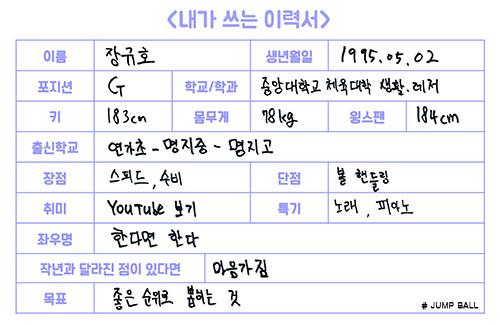 <내가 쓰는 이력서>
이름 장규호 생년월일 1995.05.02
포지션 G 학교/학과 중앙대학교 체육대학 생활.레저
키 183cm 몸무게 78kg 윙스팬 184cm
출신학교 연가초-명지중-명지고
장점 스피드, 수비 단점 볼 핸들링
취미 YouTube 보기 특기 노래, 피아노
좌우명 한다면 한다
작년과 달라진 점이 있다면 마음가짐
목표 좋은 순위로 뽑히는 것
# JUMP BALL